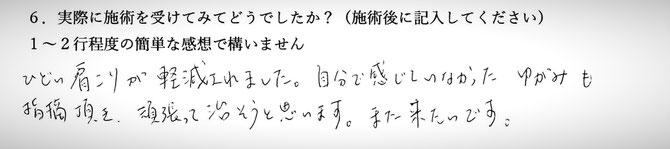 6．実際に施術を受けてみてどうでしたか？（施術後に記入してください）
1～2行程度の簡単な感想で構いません
ひどい肩こりが軽減されました。自分で感じていなかった ゆがみも
指摘頂き、頑張って治そうと思います。また来たいです。